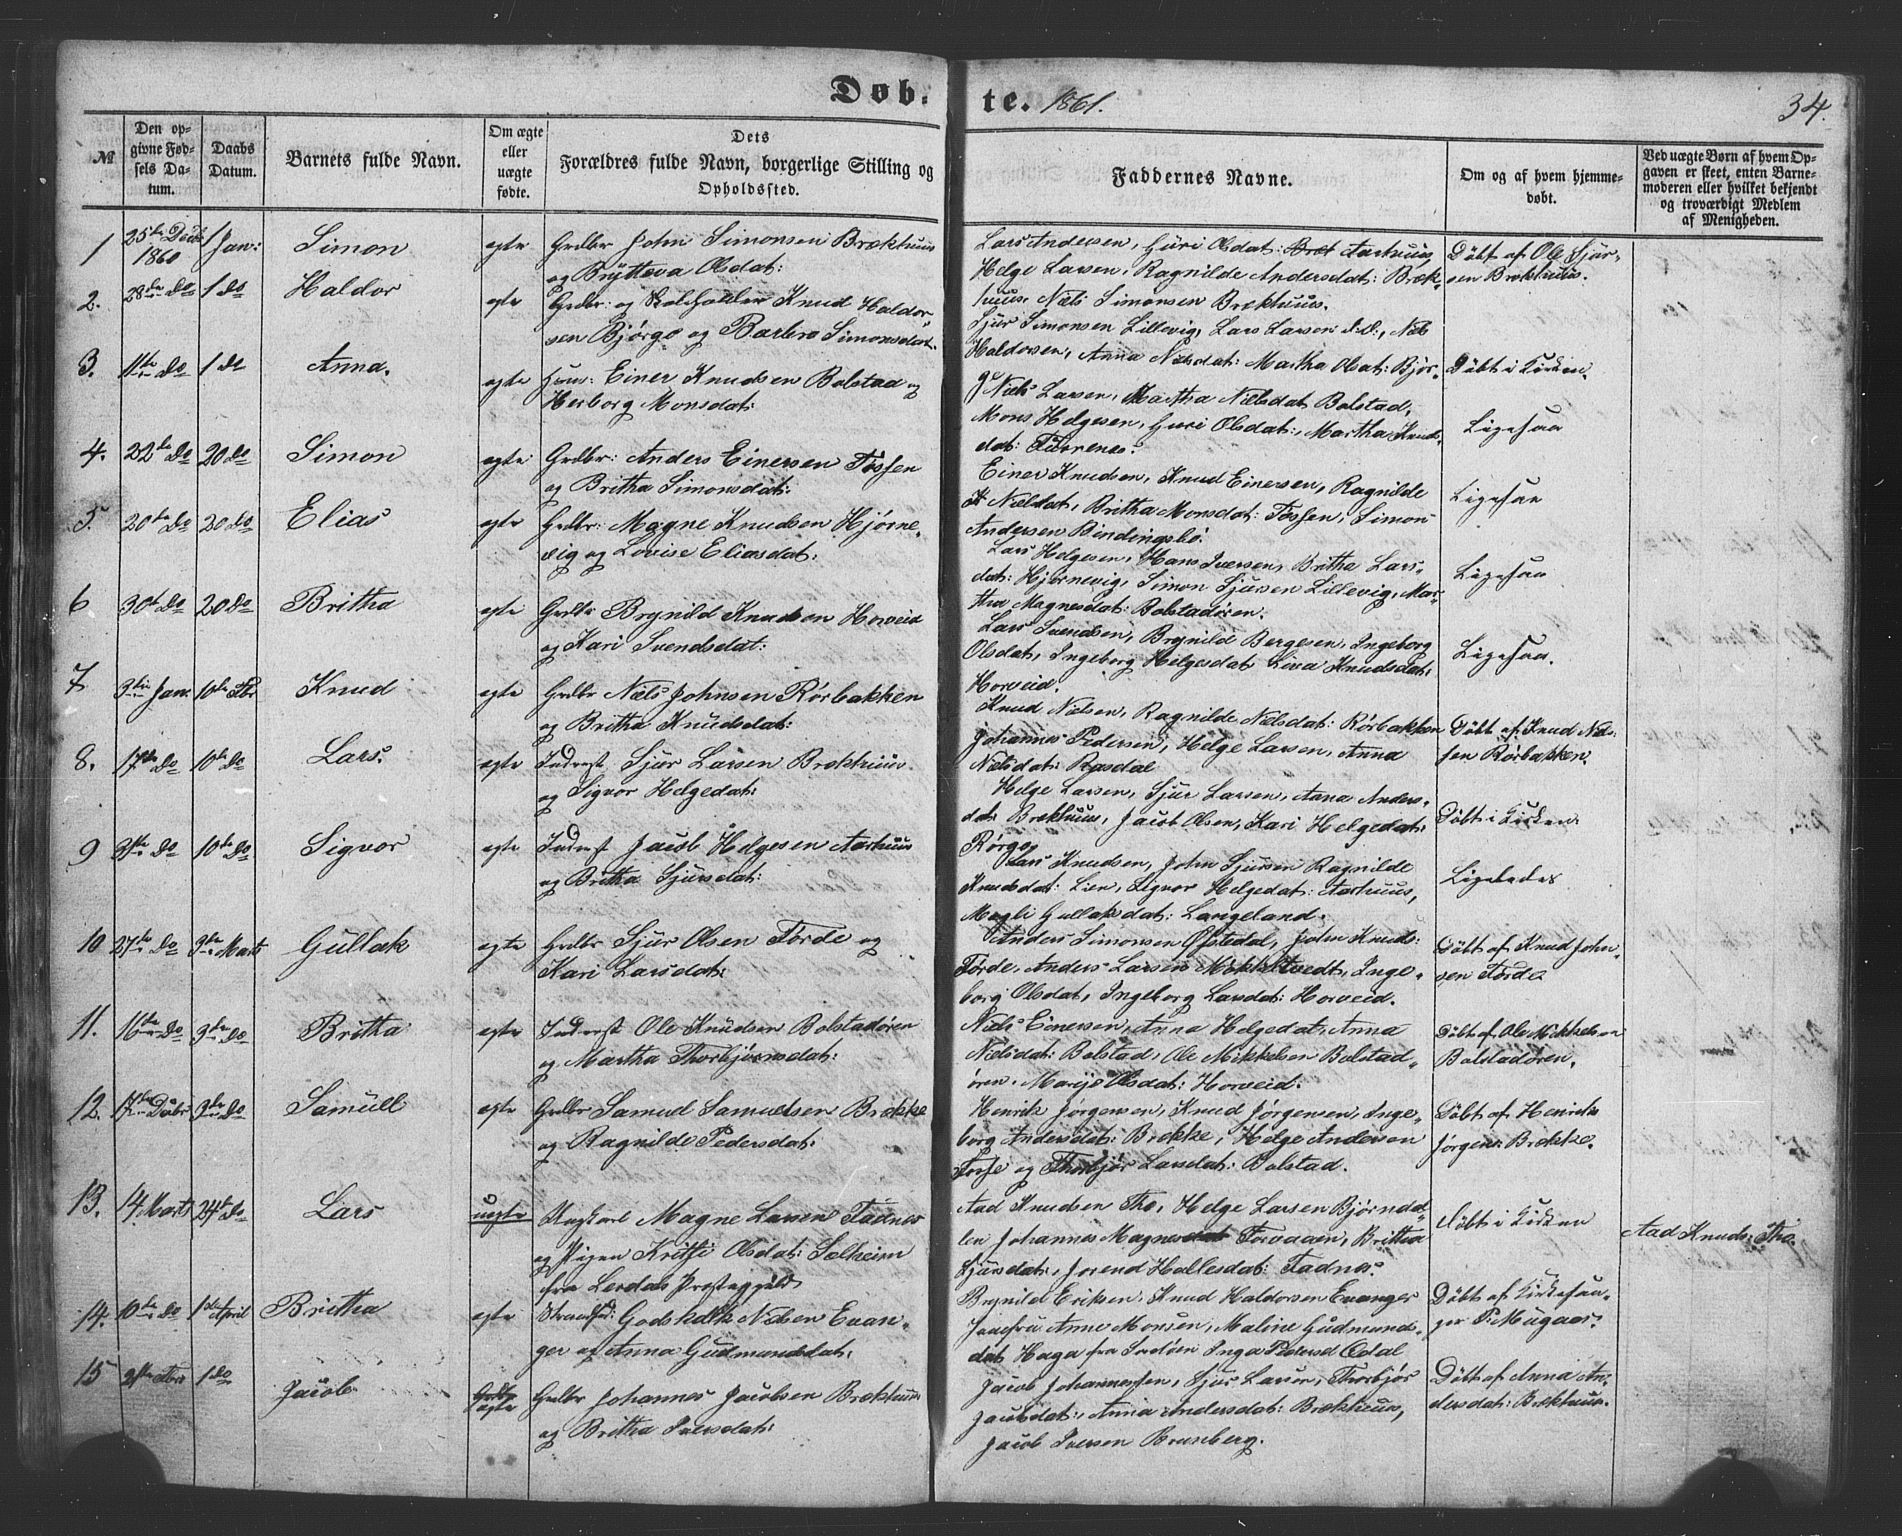 Døb.
te. 1861.
34.
№
Den op-
givne Fød-
sels Da-
tum.
Daabs
Datum.
Barnets fulde Navn.
Om ægte
eller
uægte
fødte.
Dets
Forældres fulde Navn, borgerlige Stilling og
Opholdssted.
Faddernes Navne.
Om og af hvem hjemme-
døbt.
Ved uægte Børn af hvem Op-
gaven er skeet, enten Barne-
moderen eller hvilket bekjendt
og troværdigt Medlem
af Menigheden.
1 25de Decbr 1860 1 Jan: Simon egte Grdbr John Simonsen Brækhuus
og Brytteva Olsdat:
Lars Andersen, Guri Olsdat: Aarhuus,
Helge Larsen, Ragnilde Andersdat: Bræk-
huus, Næls Simonsen Brækhuus.
Döbt af Ole Sjur-
sen Brækhuus.
2. 28de do 1 do Haldor egte Grdbr: og Knud Haldor-
sen Bjørgo og Barbro Simonsdat:
Sjur Simonsen Lillevig, Lars Larsen
Haldorsen, Anna Nælsdat: Martha Olsdat: Bjør-
go
3. 11te do 1 do Anna. egte Huusm: Einer Knudsen Bolstad og
Herborg Monsdat:
Næls Larsen, Martha Nælsdat, Bolstad,
Mons Helgesen, Guri Olsdat:, Martha Knuds-
dat:
Döbt i Kirken.
4. 22de do 20 do Simon egte Grdbr: Anders Einersen Tøssen
og Britha Simonsdat:
Einer Knudsen, Knud Einersen, Ragnilde
Nælsdat, Britha Monsdat: Tøssen, Simon
Andersen Bindingsbö.
Ligesaa
5. 20de do 20 do Elias egte Grdbr: Magne Knudsen Hjørne-
vig og Lovise Eliasdat:
Lars Helgesen, Hans Iversen, Britha Lars-
dat: Hjørnevig, Simon Sjursen Lillevig, Mar-
tha Magnesdat: Bolstadören.
Ligesaa
6 30te do 20 do Britha egte Grdbr Brynild Knudsen Horveid
og Kari Svendsdat:
Lars Svendsen, Brynild Bergesen, Ingeborg
Olsdat, Ingeborg Helgesdat Knudsdat:
Horveid.
Ligesaa
7 3die Jan. 10de Febr Knud egte Grdbr Næls Johnsen Rørbakken
og Britha Knudsdat:
Knud Nælsen, Ragnilde Nælsdat: Rørbakken
Johannes Pedersen, Helge Larsen, Anna
Nælsdat: Rasdal
Döbt af Knud Næl-
sen Rørbakken.
Ligesaa.
8. 17de do 10de do Lars. egte Inderst Sjur Larsen Brækhuus
og Sigvor Helgedat:
Helge Larsen, Sjur Larsen, Anna Anders-
dat: Brækhuus, Jacob Olsen, Kari Helgedat:
Rørgo
Döbt i Kirken
9 do 10de do Sigvor egte Inderst Jacob Helgesen Aarhuus
og Britha Sjursdat:
Lars Knudsen, John Sjursen Ragnilde
Knudsdat: Lien, Sigvor Helgedat: Aarhuus,
Magli Gullaksdat: Langeland.
Ligeledes
10 27de do 3die Marts Gullak egte Grdbr Sjur Olsen Førde og
Kari Larsdat:
Anders Simonsen Øfstedal, John Knuds:
Førde, Anders Larsen Mökkeltvedt, Inge-
borg Olsdat, Ingeborg Larsdat: Horveid.
Döbt af Knud John-
sen Førde
11. 16de do 3die do Britha egte Inderst Ole Knudsen Bolstadören
og Martha Thorbjørnsdat:
Næls Einersen, Anna Helgedat: Anna
Nælsdat: Bolstad, Ole Mikkelsen Bolstad-
ören. Marije Olsdat: Horveid.
Döbt af Ole Mikkelsen
Bolstadören.
12. 3die do Samuel egte Grdbr Samuel Samuelsen Brække
og Ragnilde Pedersdat:
Henrik Jørgensen, Knud Jørgensen, Inge-
borg Andersdat: Brække, Helge Andersen
og Thorbjør Larsdat: Bolstad.
Döbt af Henrik
Jørgens: Brække.
13. 4 Marts 24de do Lars uegte Ungkarl Magne Larsen Fadnes
og Pigen Kristi Olsdat: Sælheim
fra Lerdals Præstegjeld
Aad Knudsen Tho, Helge Larsen Bjørndal-
len Johannes Magnes Britha
Sjursdat, Jorend Hallesdat: Fadnes.
Döbt i Kirken
Aad Knuds: Tho.
14. 10de do 1de April Britha egte Strands: Godskalk Nælsen Evan-
ger og Anna Gudmundsdat:
Brynild Eriksen, Knud Haldorsen Evanger
Jomfru Anne Monsen, Maline Gudmunds-
dat Haga Inga Pedersd
Döbt af Kirkesan-
ger P. Mugaas.
15 1 do Jacob egte Grdbr Johannes Jacobsen Brækhuus
og Britha Iversdat:
Jacob Johannessen, Sjur Larsen, Thorbjør
Jacobsdat:, Anna Andersdat: Brækhuus,
Jacob Iversen Brunberg.
Döbt af Anna An-
dersdat: Brækhuus.